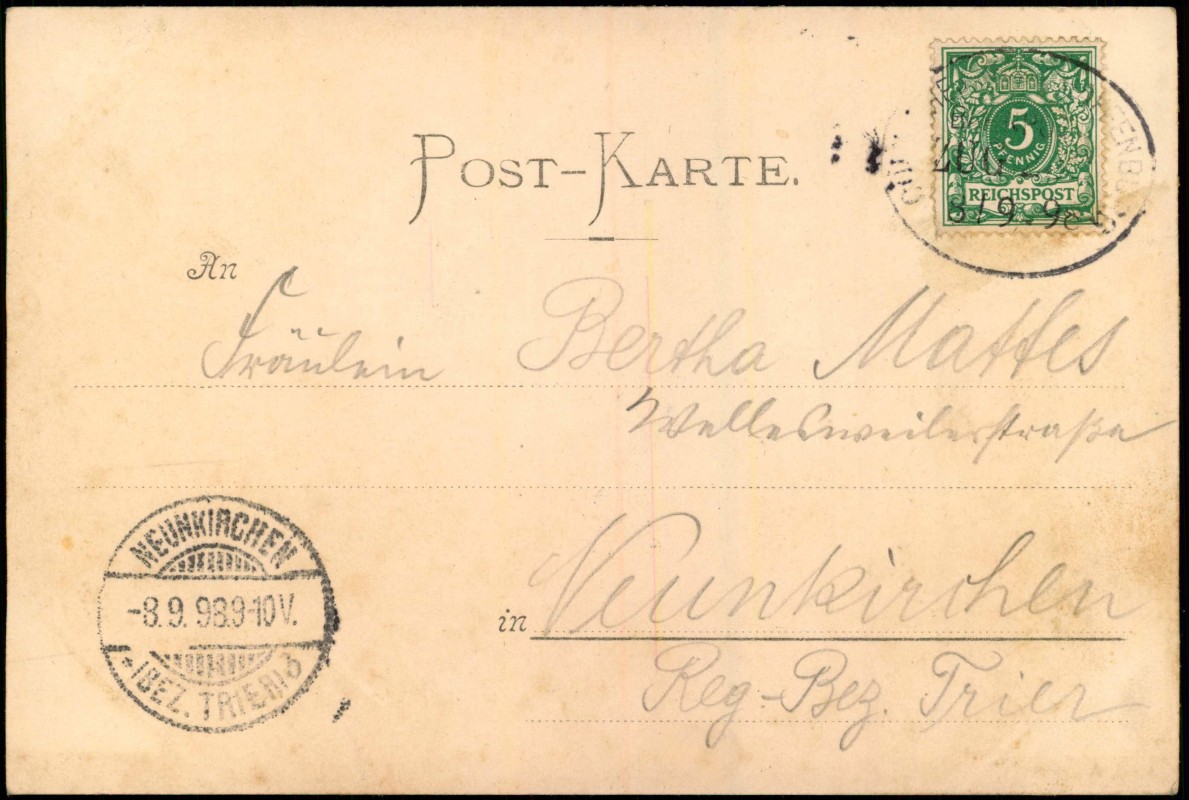 POST-KARTE.
5
PFENNIG
REICHSPOST
ZUG
8/9 98
An
Fräulein Bertha Mattes
Wellesweilerstraße
in Neunkirchen
Reg-Bez. Trier
NEUNKIRCHEN
-8.9. 98.9-10V.
* (BEZ. TRIER) 3